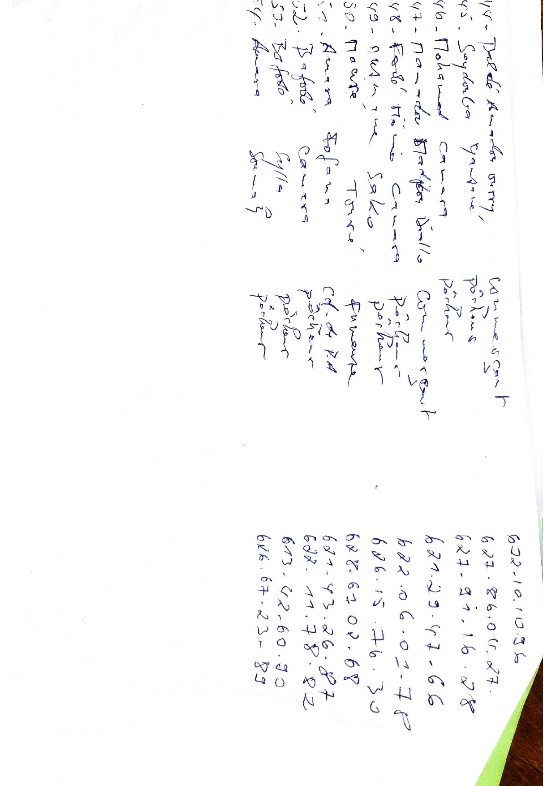 44- Diallo Amadou oury, commerçant 622-10.10.96
45. Seydouba Yansané pêcheur 627.86.04.27.
46. Mohamed Camara pêcheur 627-91.16.28
47- Mamadou Madjou Diallo Commerçant 621.29.47-66
48- Fodé Momo Camara pêcheur 622.06.01-78
49- Sako, pêcheur 626.15.76.30
50. Touré, fumeuse 628.67 02.68
51. Amara Fofana Cd. de P.A 621-43.26.87
52. Bafodé Camara pêcheur 622.11.78.82
53. Bafodé Sylla pêcheur 613.42-60.90
54. Amara Soumah pêcheur 626.67.23-89